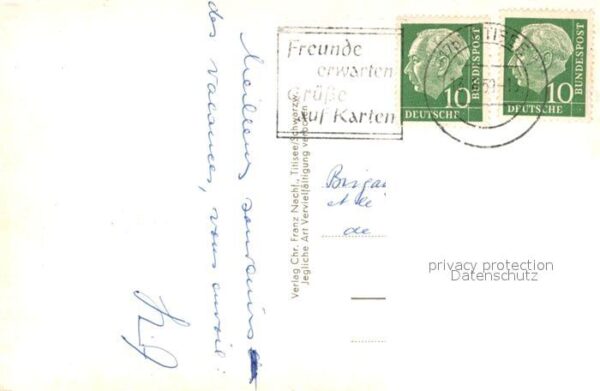 Meilleurs souvenirs
des vacances, vous envoie :
Verlag Chr. Franz Nachf., Titisee/Schwarzw.
Jegliche Art Vervielfältigung verboten
Freunde
erwarten
Grüße
auf Karten
TITISEE
59
10
DEUTSCHE
BUNDESPOST
10
DEUTSCHE
BUNDESPOST
et
de
privacy protection
Datenschutz